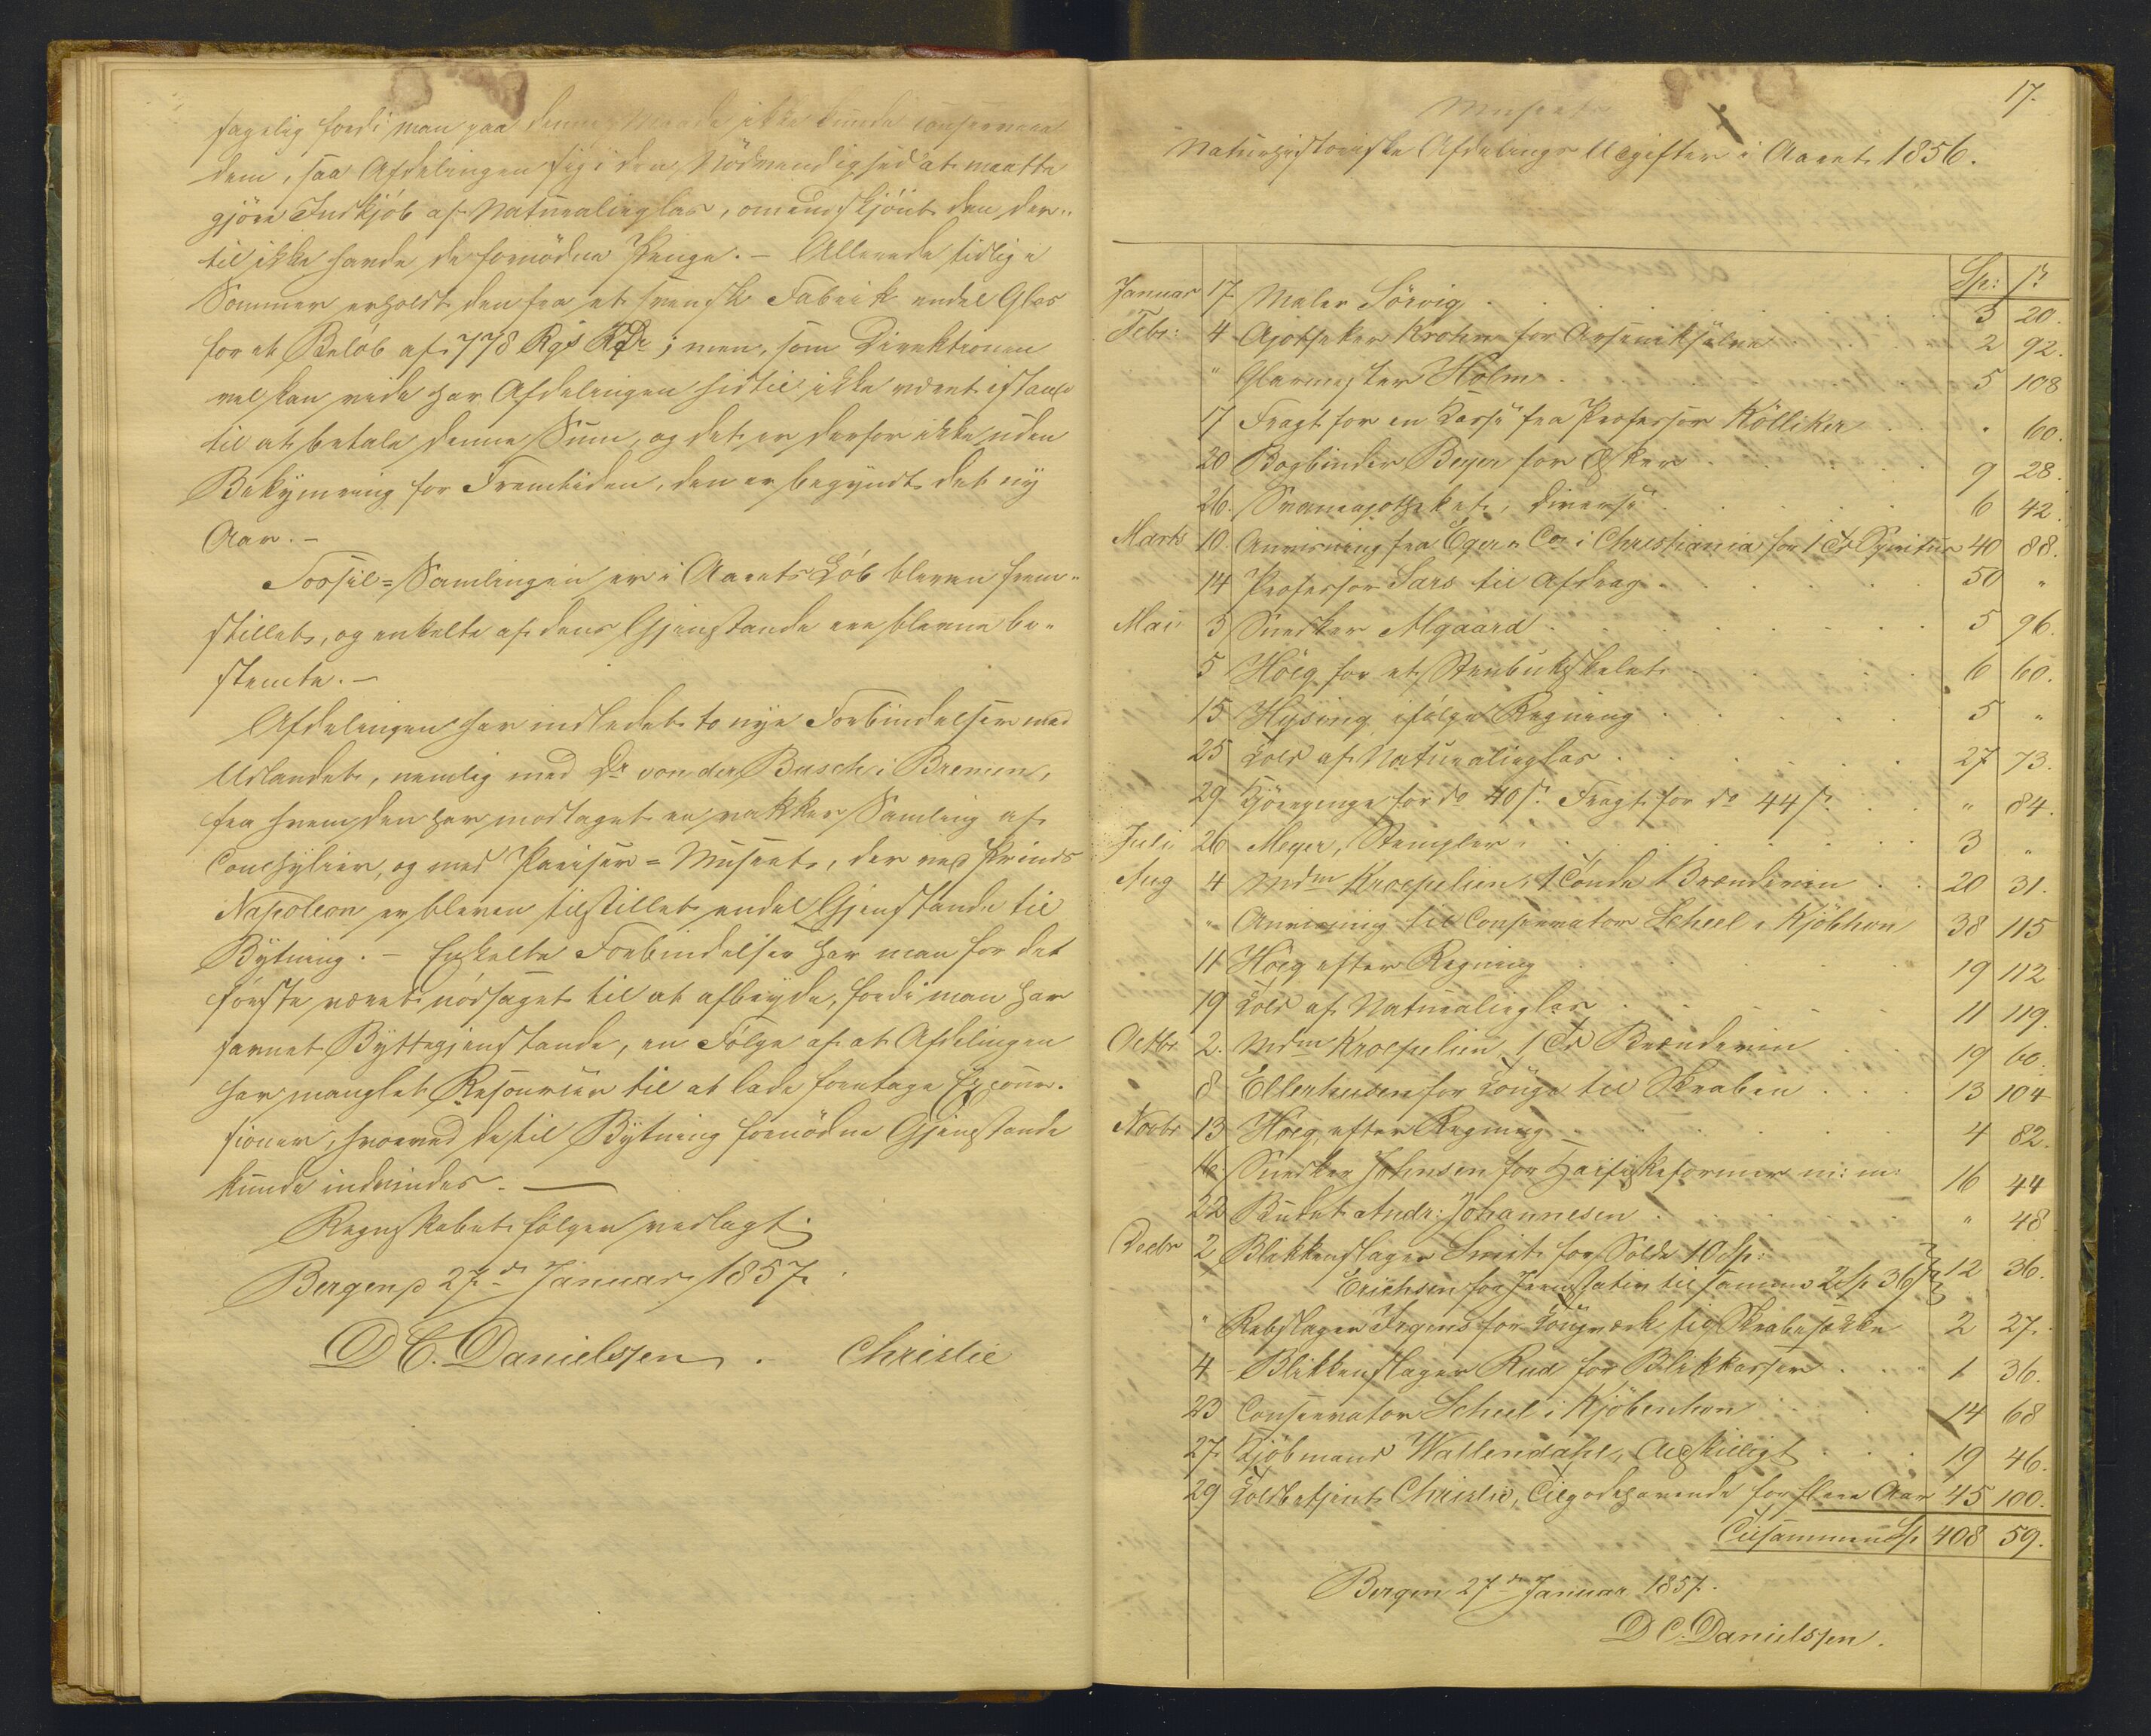 fagelig fordi man paa denne Maade ikke kunde conservere
dem, saa Afdelingen sig i den Nödvendighed at maatte
gjöre Indkjöb af Naturalieglas, omendskjönt den der-
til ikke havde de fornödne Penge. – Allerede tidlig i
Sommer erholdt den fra et svensk Fabrik endel Glas
for et Belöb af 778 Rgs RDr; men, som Direktionen
vel kan vide har Afdelingen hidtil ikke været istand
til at betale denne Sum, og det er derfor ikke uden
Bekymring for Fremtiden, den er begyndt det ny
Aar. –
Fossil=Samlingen er i Aarets Löb bleven frem-
stillet, og enkelte af dens Gjenstande ere blevne be-
stemte. –
Afdelingen har indledet to nye Forbindelser med
Udlandet, nemlig med Dr von der Busch i Bremen,
fra hvem den har modtaget en vakker Samling af
Conchylier, og med Pariser=Museet, der ved Prinds
Napoleon er bleven tilstillet endel Gjenstande til
Bytning. – Enkelte Forbindelser har man for det
förste været nödsaget til at afbryde, fordi man har
savnet Byttegjenstande, en Fölge af at Afdelingen
har manglet Resourcer til at lade foretage Excur-
sioner, hvorved de til Bytning fornödne Gjenstande
kunde indvindes. —
Regnskabet fölger vedlagt.
Bergen d 27de Januar 1857.
D C. Danielssen. Christie
17.
Museets
Naturhistoriske Afdelings Udgifter i Aaret 1856.
Sp: s
Januar 17. Maler Sörvig . 3 20.
Febr: 4 Apotheker Krohn for Arseniksæbe 2 92.
" Glarmester Holm . 5 108
17 Fragt for en Kasse fra Professor Kölliker . . 60.
20 Bogbinder Beyer for Æsker . 9 28.
26. Svaneapotheket, diverse . 6 42.
Marts 10. Anvisning fra Eger & Co i Christiania for 1 Td Spiritus 40 88.
14 Professor Sars til Afdrag . 50 "
Mai 3 Snedker Algaard . 5 96.
5 Höeg for et Stenbukskelet 6 60.
15 Hysing ifölge Regning . 5 "
25 Told af Naturalieglas . 27 73.
29 Kjörepenge for do 40 s. Fragt for do 44 s. " 84.
Juli 26 Meyer, Stempler . 3 "
Aug 4 Mdm Kroepelien, 1 Tönde Brændeviin . 20 31.
" Anvisning til Conservator Scheel i Kjöbhvn 38 115
11 Höeg efter Regning . 19 112
19 Told af Naturalieglas . 11 119.
Octbr 2. Mdm Kroepelien 1 Td Brændeviin . 19 60.
8 Ellerhusen for Touge til Skraben . 13 104
Novbr 13 Höeg, efter Regning . 4 82.
16. Snedker Johnsen for Haifiskeformer m: m: 16 44
22 Budet Andr: Johannesen . " 48
Decbr 2 Blikkenslager Smit for Solde 10 Sp:
Erichsen for Jernstativ til samme 2 Sp 36 s } 12 36.
" Rebslager Irgens for Tougværk til Skrabesække 2 27.
4 Blikkenslager Rud for Blikkasser . 1 36.
23 Conservator Scheel i Kjöbenhvn . 14 68
27. Kjöbmand Wallendahl, Adskilligt . 19 46.
29 Toldbetjent Christie, Tilgodehavende for flere Aar 45 100.
Tilsammens Sp 408 59.
Bergen 27de Januar 1857.
D C. Danielssen.